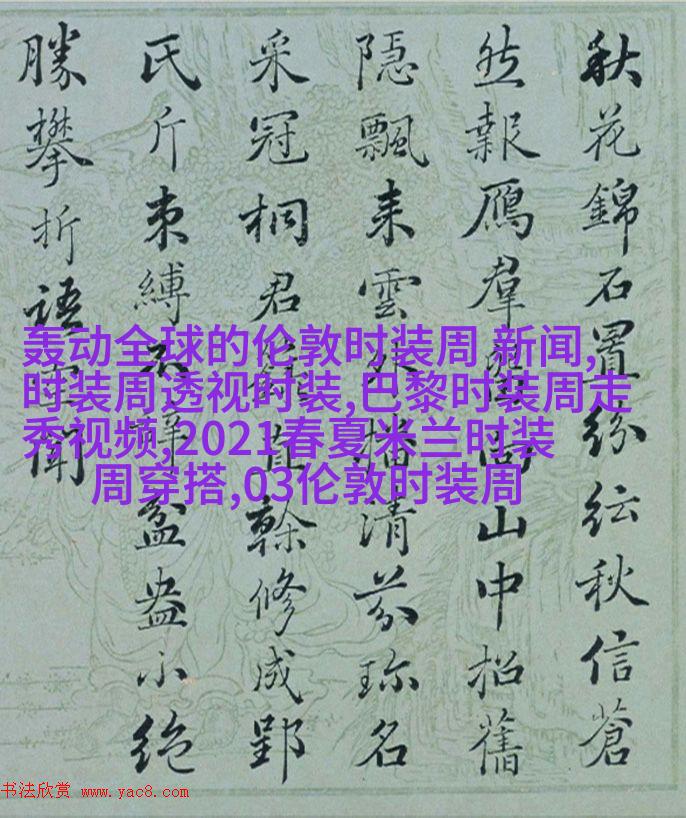 秋花錦石置紛紜秋信蒼
然報鴈羣山中招舊
隱飄来雲外播清芬珎名
采冠桐君幹修成郢
氏斤束縛不辭盆盎小絶
勝攀折語聞
轰动全球的伦敦时装周 新闻,
时装周透视时装,巴黎时装周走
秀视频,2021春夏米兰时装
周穿搭,03伦敦时装周
书法欣赏 www.yac8.com